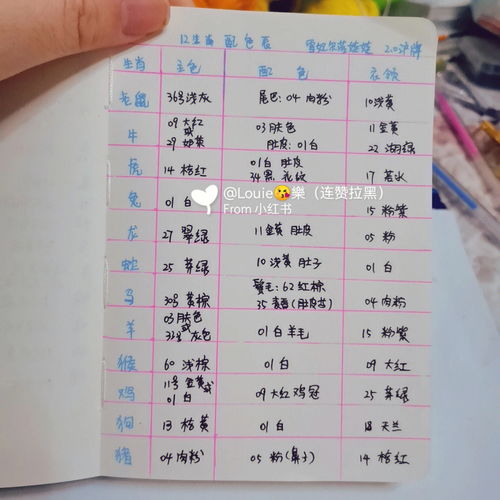 12生肖 配色表 雪妃尔莎娃娃 2.0沪牌
生肖 主色 配色 衣领
老鼠 36号浅灰 尾巴:04肉粉 10浅黄
牛 09大红 或 29奶黄 03肤色 肚皮:01白 11金黄 22湖绿
虎 14桔红 01白 肚皮 34黑 花纹 17若水
兔 01白 15粉紫
龙 27翠绿 11金黄 肚皮 05粉
蛇 25草绿 10浅黄 肚子 01白
马 30号黄棕 鬃毛:62红棕 35 04肉粉
羊 03肤色 或 33号灰色 01白羊毛 15粉紫
猴 60浅棕 01白 09大红
鸡 11号金黄或 01白 09大红鸡冠 25草绿
狗 13桔黄 01白 18天兰
猪 04肉粉 05粉(鼻子) 14桔红
@Louie😘樂(连赞拉黑)
From 小红书